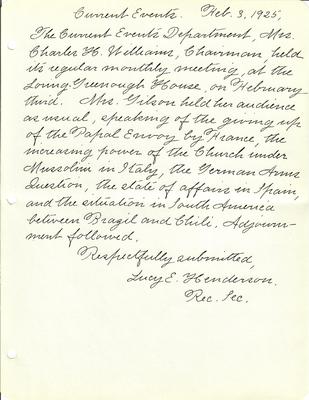 Current Events. Feb. 3, 1925.
The Current Events Department, Mrs.
Charles H. Williams, Chairman, held
its regular monthly meeting, at the
Loring Greenough House, on February
third. Mrs. Gilson held her audience
as usual, speaking of the giving up
of the Papal Envoy by France, the
increasing power of the Church under
Mussolini in Italy, the German Arms
Question, the state of affairs in Spain,
and the situation in South America
between Brazil and Chili. Adjourn-
ment followed.
Respectfully submitted,
Lucy E. Henderson.
Rec. Sec.